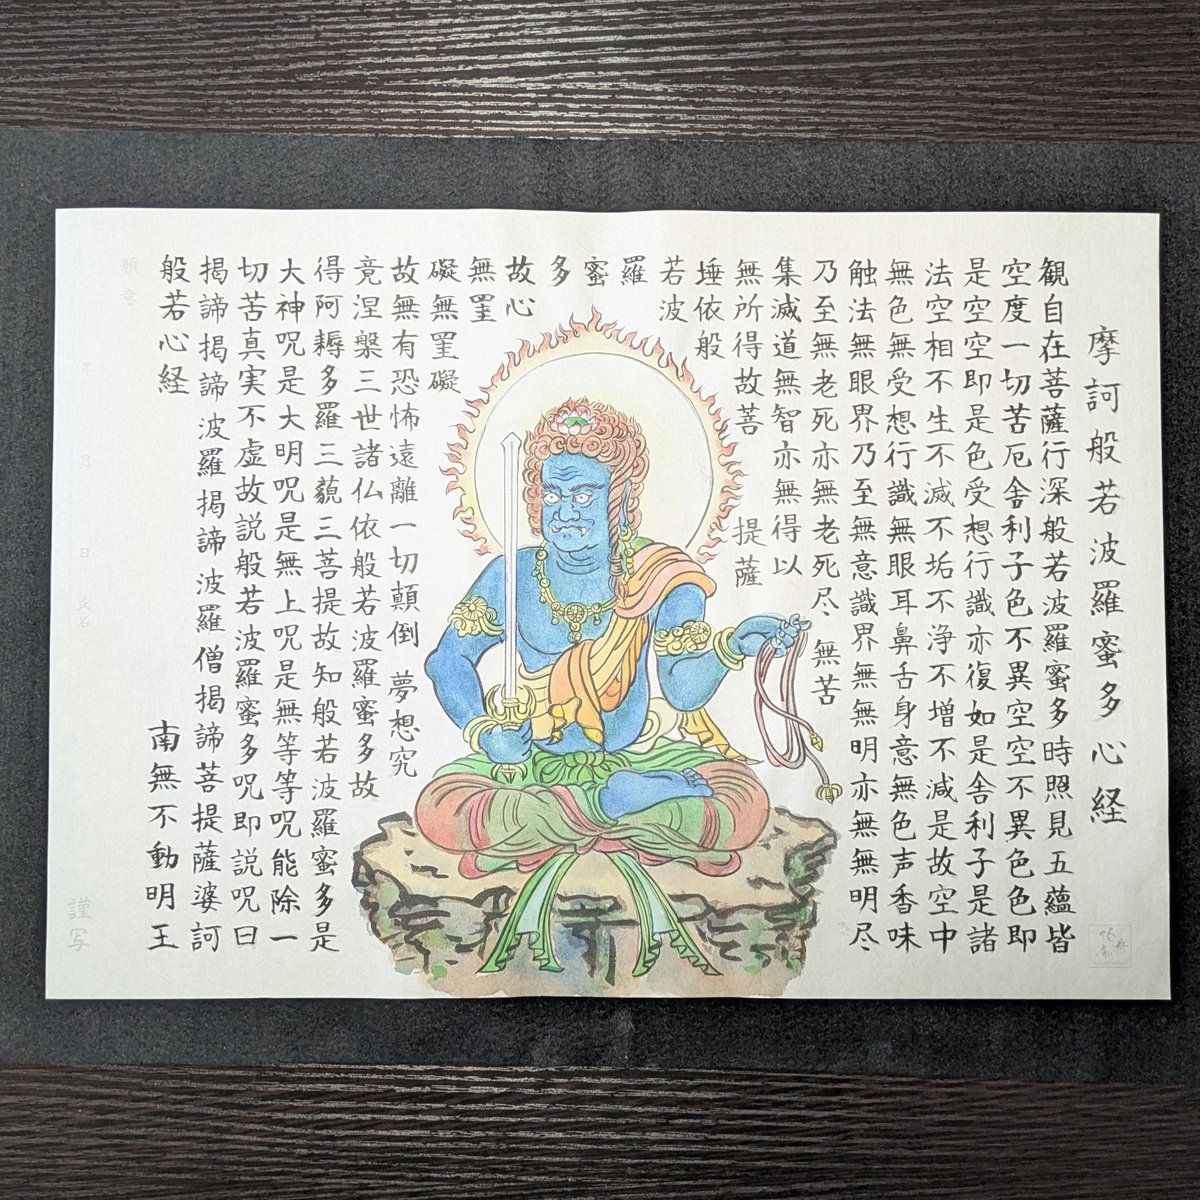 摩訶般若波羅蜜多心経
観自在菩薩行深般若波羅蜜多時照見五蘊皆
空度一切苦厄舎利子色不異空空不異色色即
是空空即是色受想行識亦復如是舎利子是諸
法空相不生不滅不垢不浄不増不減是故空中
無色無受想行識無眼耳鼻舌身意無色声香味
触法無眼界乃至無意識界無無明亦無無明尽
乃至無老死亦無老死尽 無苦
集滅道無智亦無得以
無所得故菩 提薩
埵依般
若波
羅
蜜
多
故心
無罣
礙無罣礙
故無有恐怖遠離一切顛倒 夢想究
竟涅槃三世諸仏依般若波羅蜜多故
得阿耨多羅三藐三菩提故知般若波羅蜜多是
大神呪是大明呪是無上呪是無等等呪能除一
切苦真実不虚故説般若波羅蜜多呪即説呪曰
掲諦掲諦 波羅掲諦 波羅僧掲諦菩提薩婆訶
般若心経
南無不動明王
願意
年 月 日 氏名
謹写